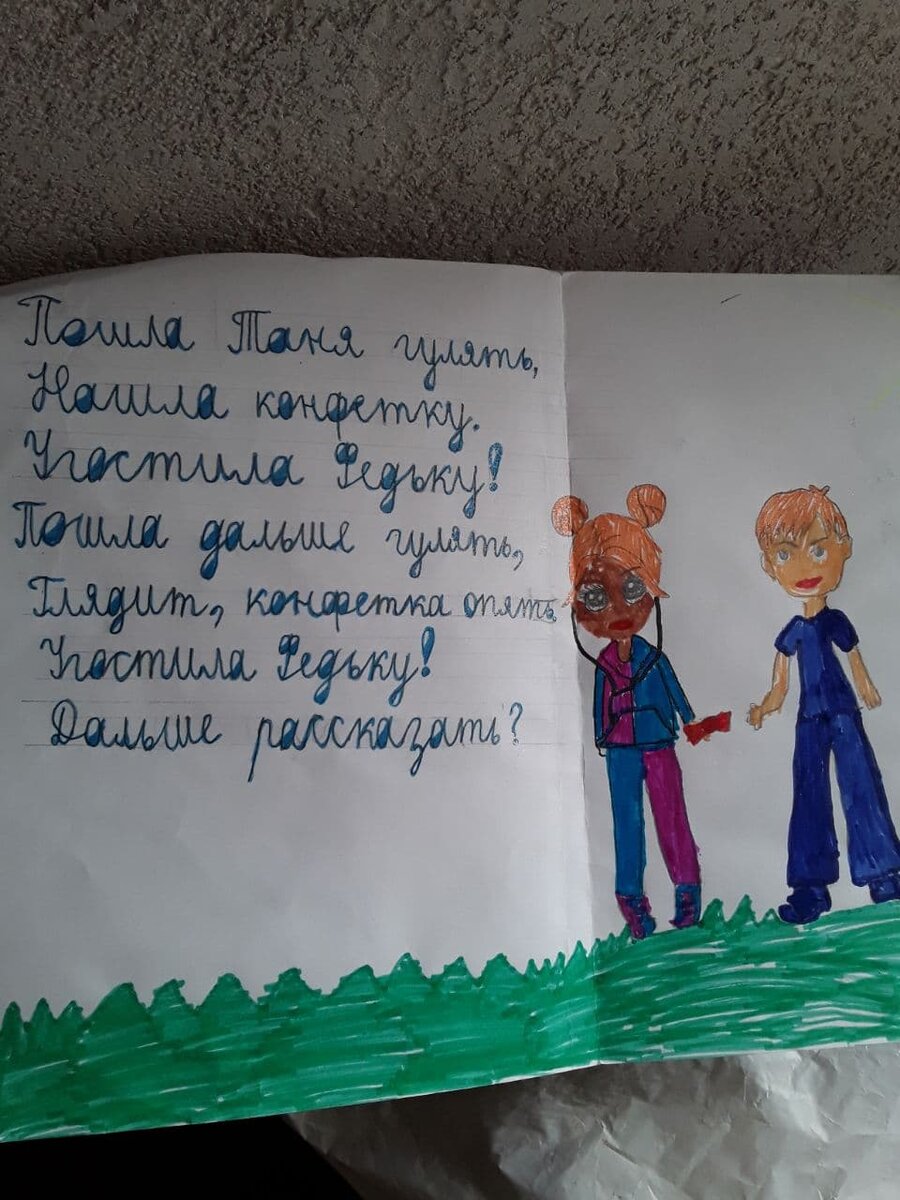 Пошла Таня гулять,
Нашла конфетку.
Угостила Федьку!
Пошла дальше гулять,
Глядит, конфетка опять
Угостила Федьку!
Дальше рассказать?